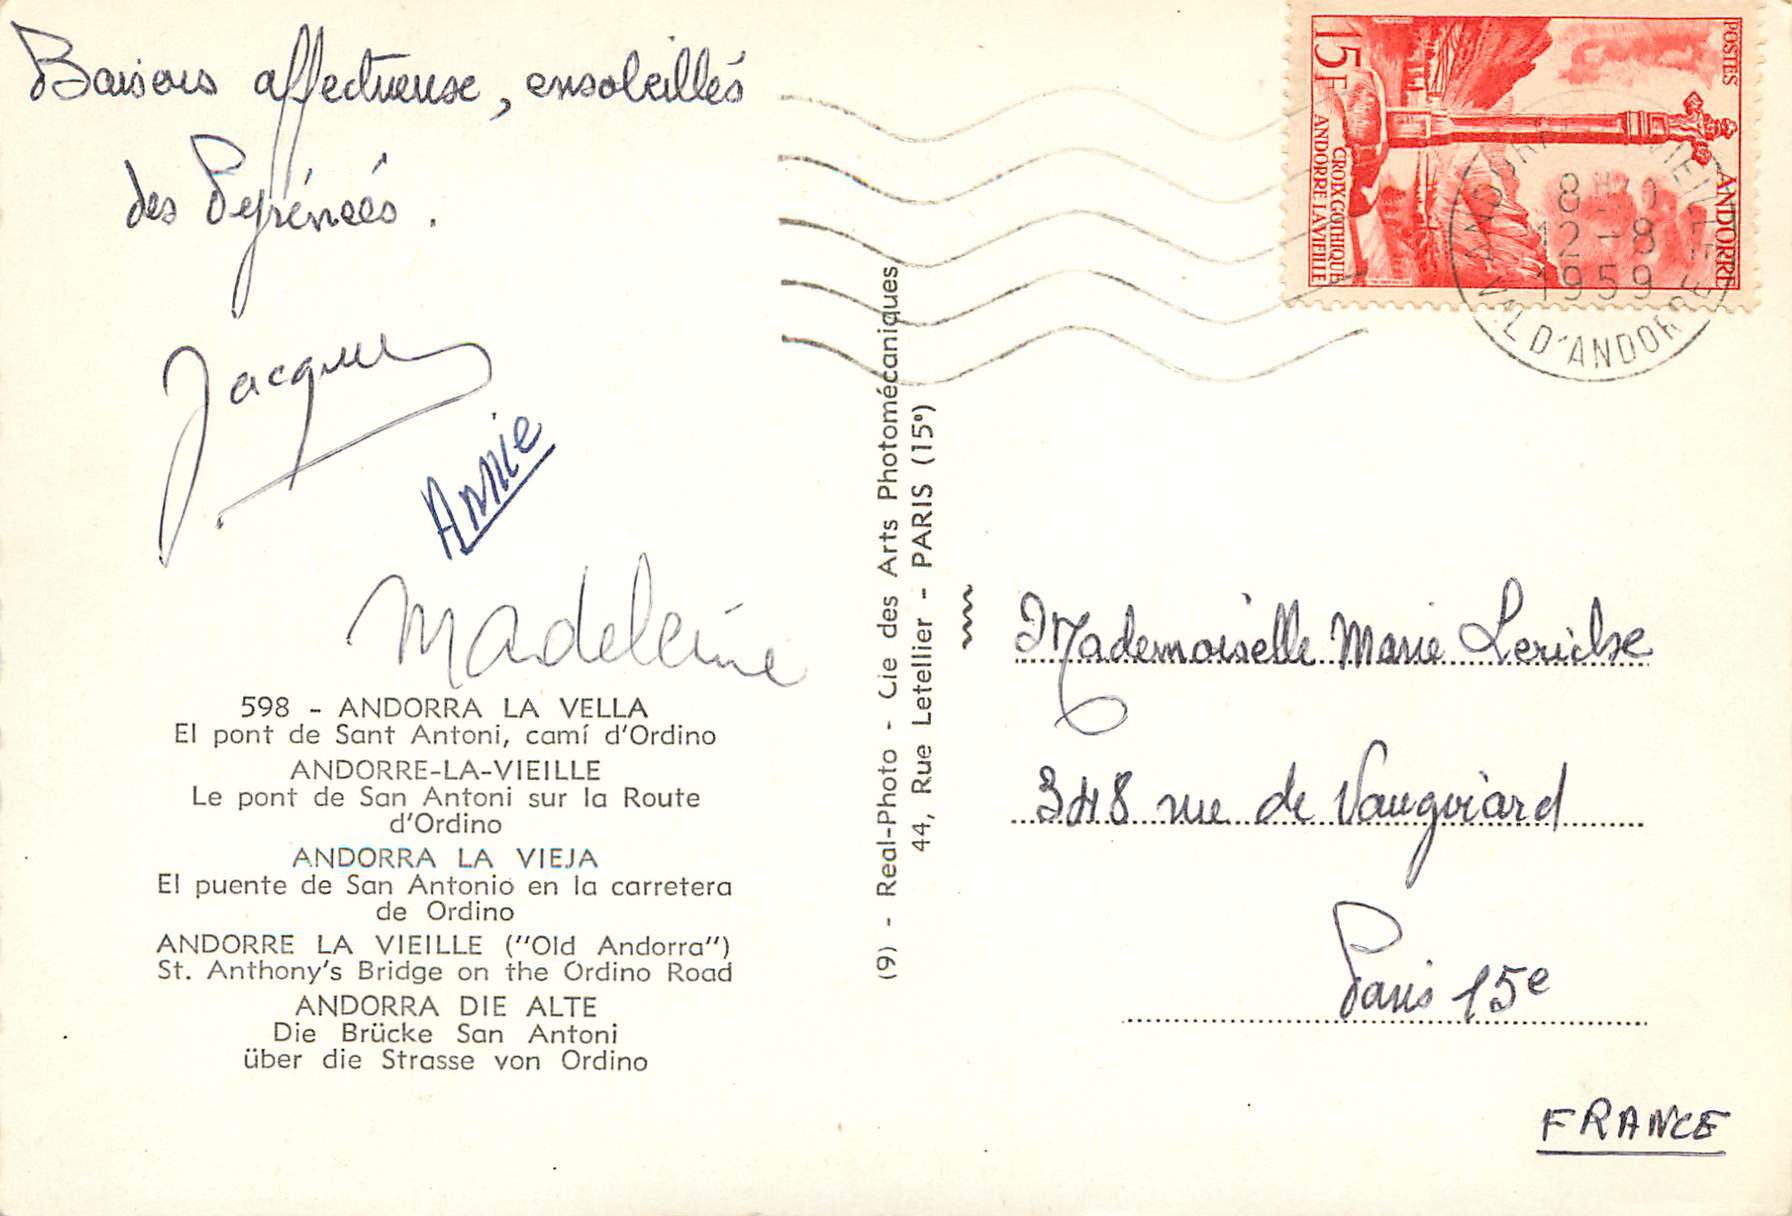 Baisers affectueuse, ensoleillés
des Pyrénées.
Jacques
Annie
Madeleine
598 - ANDORRA LA VELLA
El pont de Sant Antoni, camí d'Ordino
ANDORRE-LA-VIEILLE
Le pont de San Antoni sur la Route
d'Ordino
ANDORRA LA VIEJA
El puente de San Antonio en la carretera
de Ordino
ANDORRE LA VIEILLE ("Old Andorra")
St. Anthony's Bridge on the Ordino Road
ANDORRA DIE ALTE
Die Brücke San Antoni
über die Strasse von Ordino
(9) - Real-Photo - Cie des Arts Photomécaniques
44, Rue Letellier - PARIS (15e)
15F
POSTES
CROIX GOTHIQUE
ANDORRE LA VIEILLE
ANDORRE
ANDORRE LA VIEILLE
8H
12-8
1959
VAL D'ANDORRE
Mademoiselle Marie
348 rue de Vaugirard
Paris 15e
FRANCE